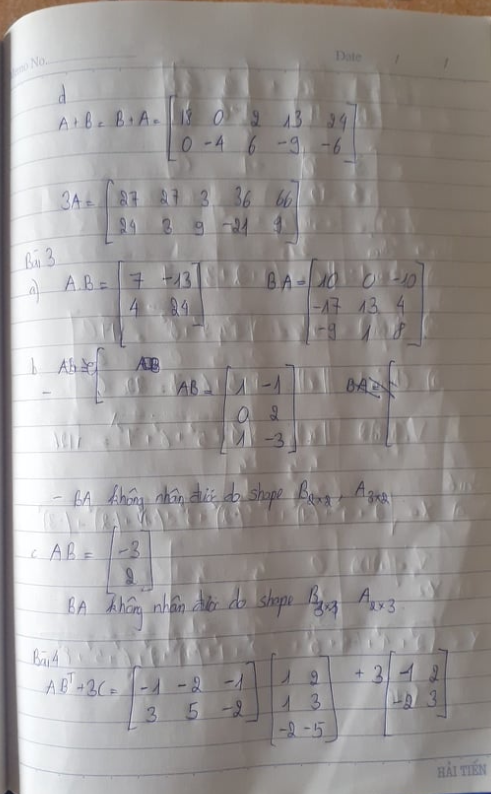 Memo No. Date / /
d
A+B = B+A = [18 0 2 13 24
0 -4 6 -9 -6]
3A = [27 27 3 36 66
24 3 9 -21 9]
Bài 3
a) A.B = [7 -13
4 24] B.A = [10 0 -10
-17 13 4
-9 1 8]
b AB = [1 -1
0 2
1 -3]
- BA không nhân được do shape B2×2, A3×2
c AB = [-3
2]
BA không nhân được do shape A2×3
Bài 4
AB^T+3C = [-1 -2 -1
3 5 -2] [1 2
1 3
-2 -5] + 3 [-1 2
-2 3]
HẢI TIẾN